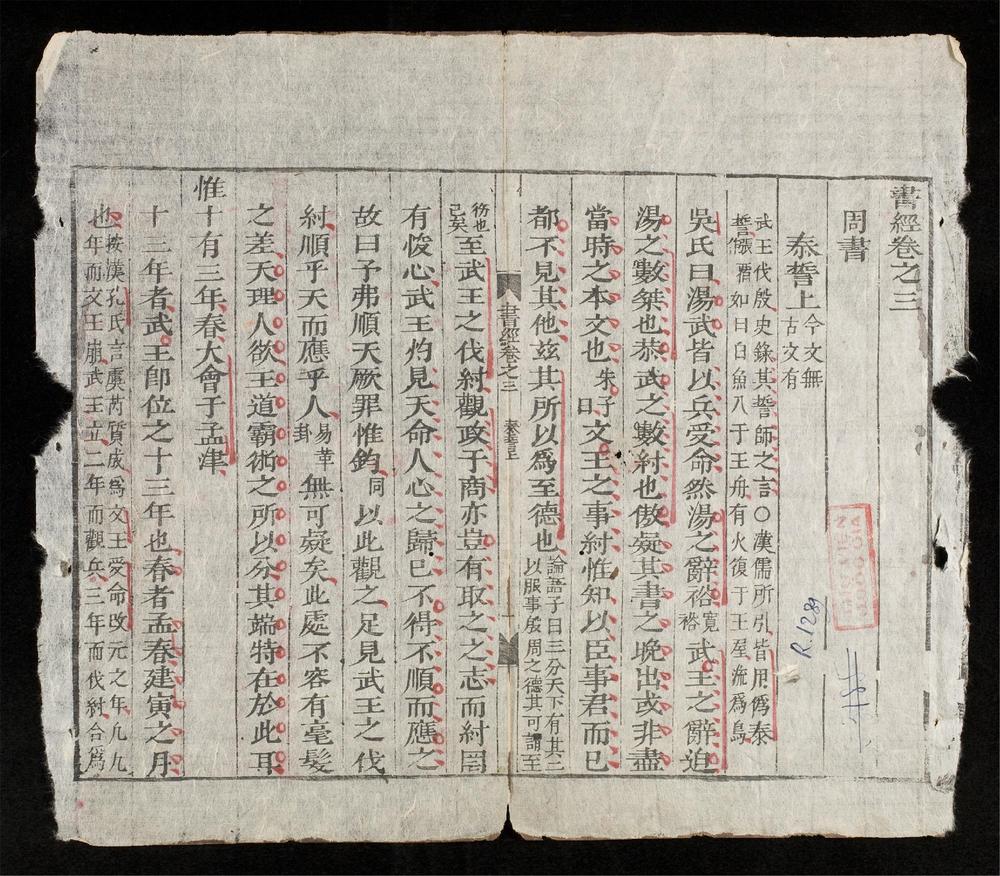 書經卷之三
周書
泰誓上 今文無古文有
武王伐殷史錄其誓師之言○漢儒所引皆用僞泰
誓僞泰誓如曰白魚入于王舟有火復于王屋流爲烏
吳氏曰湯武皆以兵受命然湯之辭裕寬裕武王之辭迫
湯之數桀也恭武之數紂也傲疑其書之晚出或非盡
當時之本文也朱子曰文王之事紂惟知以臣事君而已
都不見其他兹其所以爲至德也論語子曰三分天下有其二以服事殷周之德其可謂至
書經卷之三 泰誓上
德也已矣至武王之伐紂觀政于商亦豈有取之之志而紂罔
有悛心武王灼見天命人心之歸巳不得不順而應之
故曰予弗順天厥罪惟鈞同以此觀之足見武王之伐
紂順乎天而應乎人易革卦無可疑矣此處不容有毫髮
之差天理人欲王道霸術之所以分其端特在於此耳
惟十有三年春大會于孟津
十三年者武王卽位之十三年也春者孟春建寅之月
也按漢孔氏言虞芮質成爲文王受命改元之年凡九
年而文王崩武王立二年而觀兵三年而伐紂合爲
R.1289